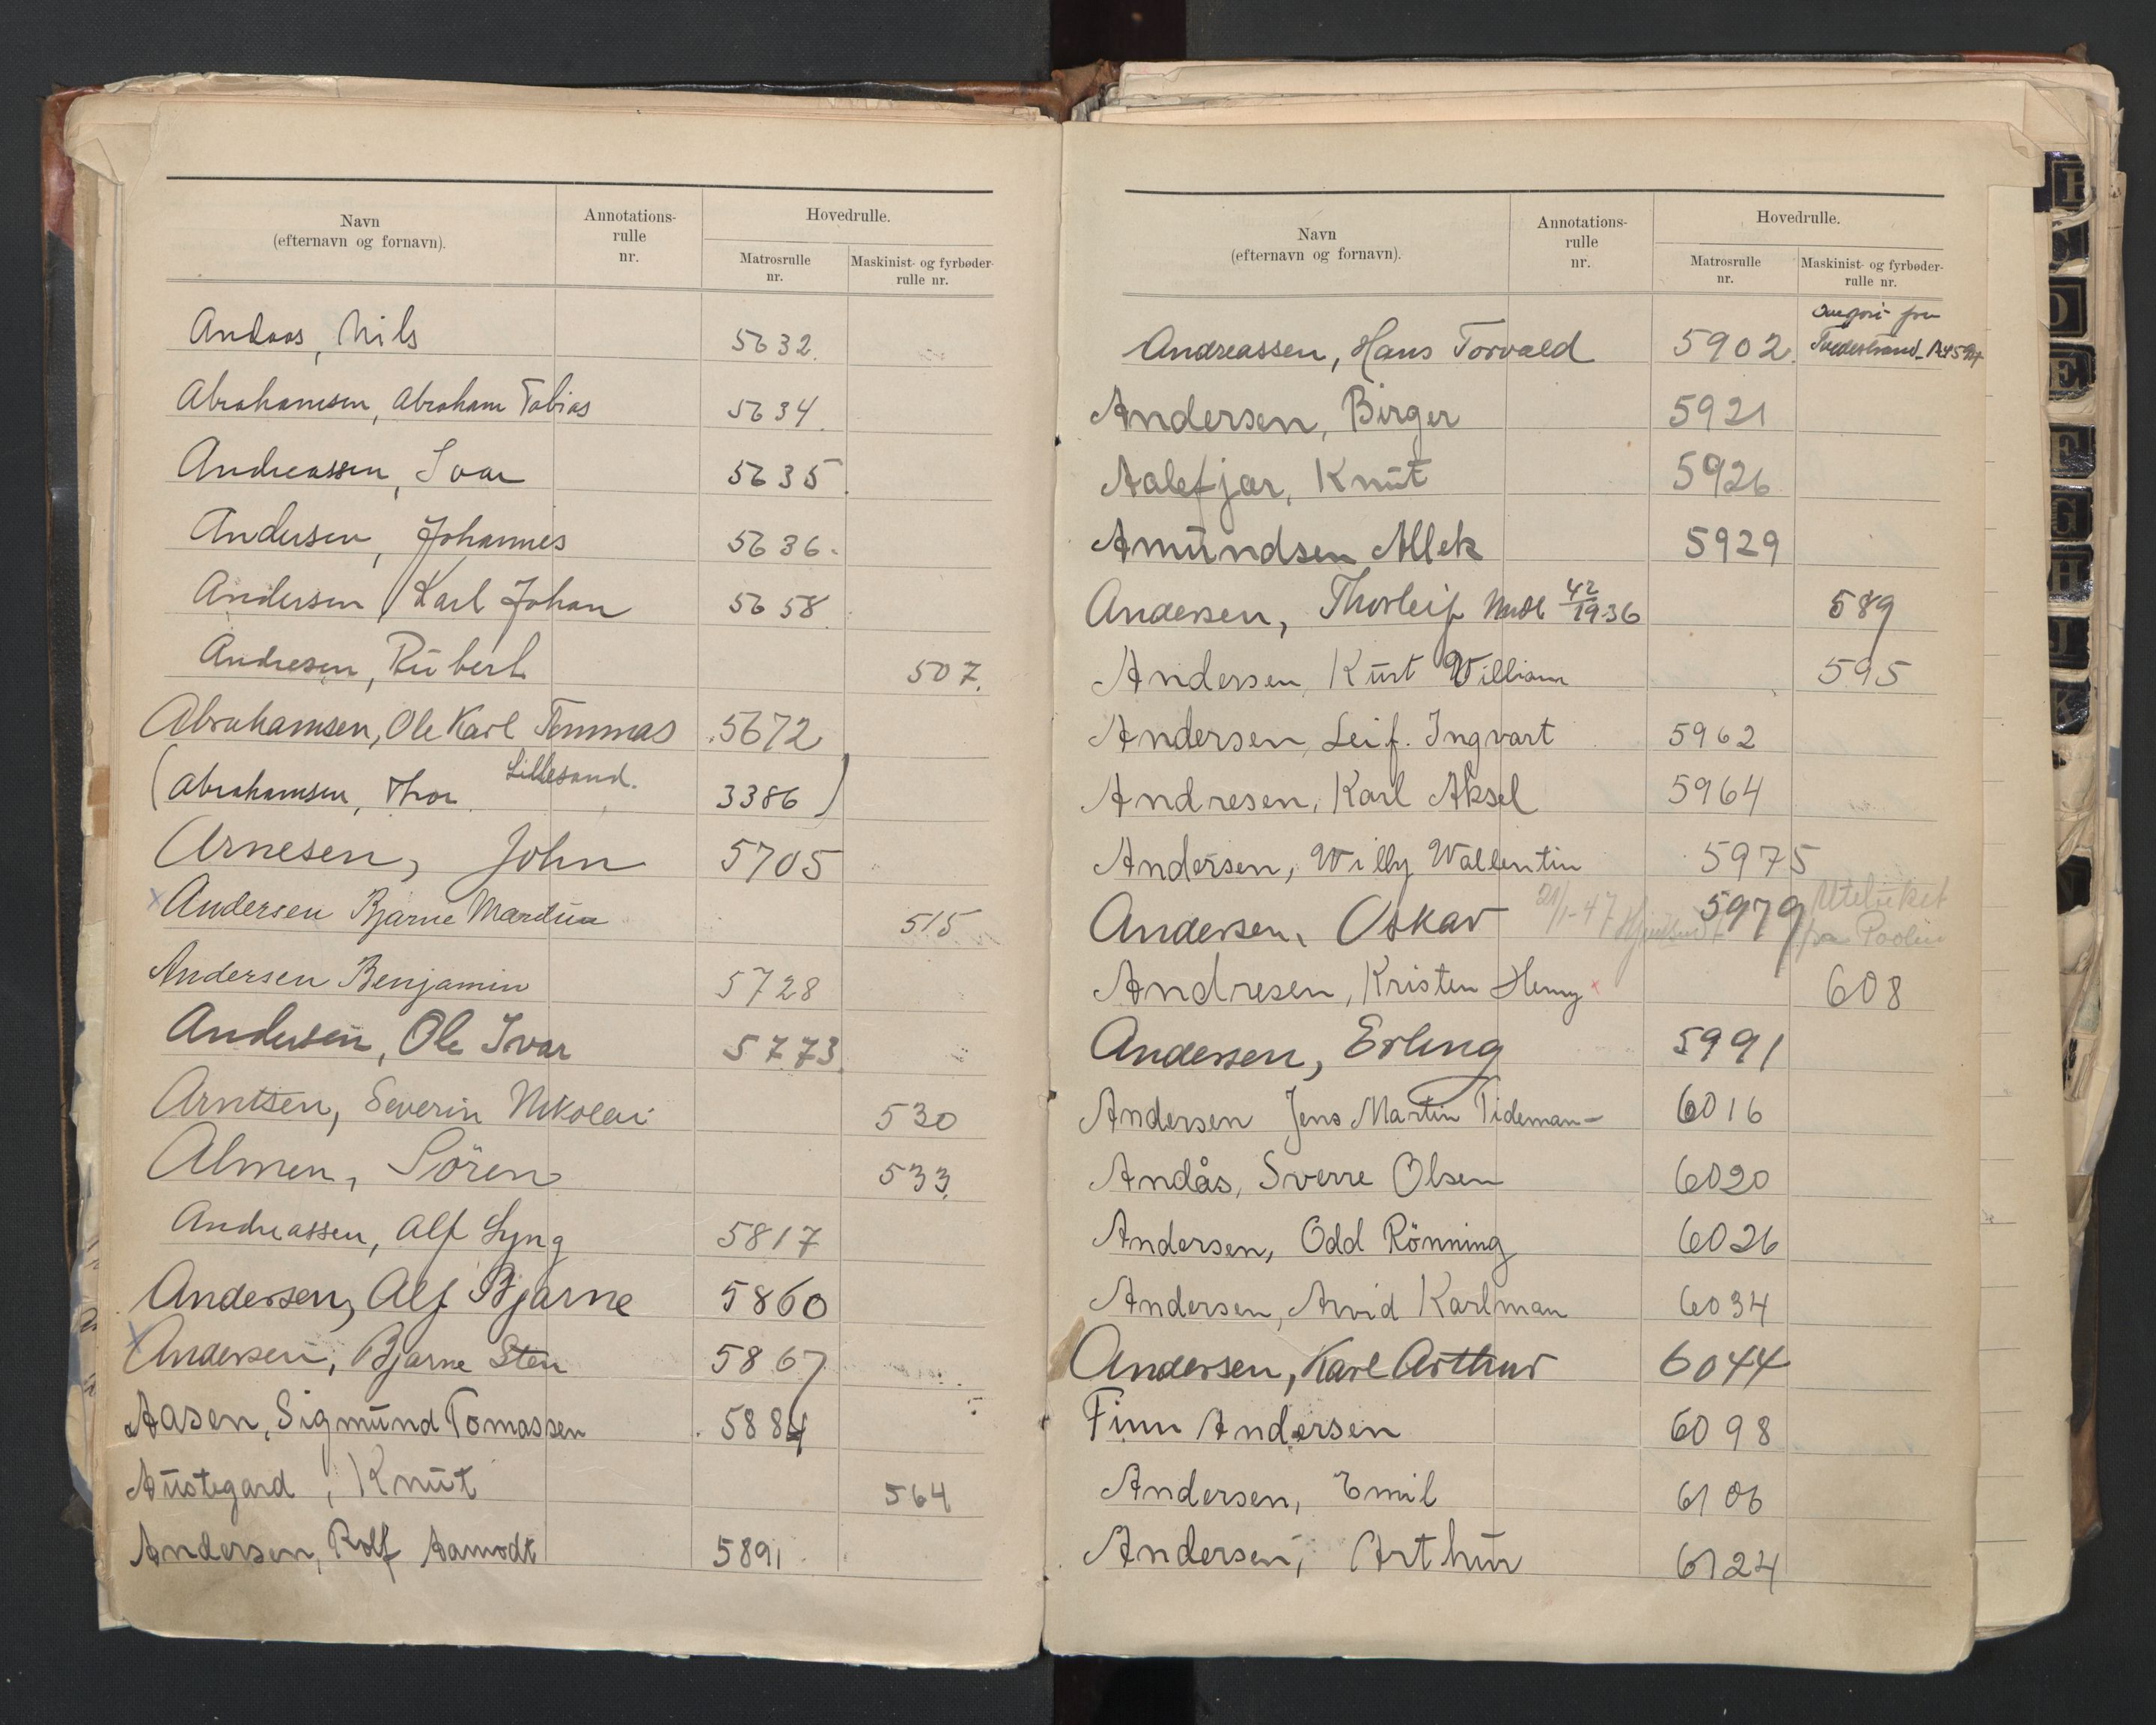 Navn
(efternavn og fornavn).
Annotations-
rulle
nr.
Hovedrulle.
Matrosrulle
nr.
Maskinist- og fyrbøder-
rulle nr.
Andaas, Nils 5632.
Abrahamsen, Abraham Tobias 5634.
Andreassen, Ivar 5635.
Andersen, Johannes 5636.
Andersen, Karl Johan 5658.
Andresen, Rubert 507.
Abrahamsen, Ole Karl Tommas 5672
(Abrahamsen, Thor Lillesand. 3386)
Arnesen, John 5705
x Andersen Bjarne 515
Andersen Benjamin 5728
Andersen, Ole Ivar 5773.
Arntsen, Severin Nikolai 530
Almen, Sören 533.
Andreassen, Alf Lyng 5817
Andersen, Alf Bjarne 5860
x Andersen, Bjarne Sten 5867
Aasen, Sigmund Tomassen 5884
Austegard, Knut 564
Andersen, Rolf Aamodt 5891
Navn
(efternavn og fornavn).
Annotations-
rulle
nr.
Hovedrulle.
Matrosrulle
nr.
Maskinist- og fyrbøder-
rulle nr.
Andreassen, Hans Torvald 5902. Tvedestrand
Andersen, Birger 5921
Aalefjær, Knut 5926
Amundsen Allek 5929
Andersen, Thorleif 42/1936 589
Andersen, Kurt William 595
Andersen, Leif. Ingvart 5962
Andresen, Karl Aksel 5964
Andersen, Willy Wallentin 5975
Andersen, Oskar 5979
Andresen, Kristen Henry 608
Andersen, Erling 5991
Andersen Jens Martin Tideman- 6016
Andås, Sverre Olsen 6020
Andersen, Odd Rönning 6026
Andersen, Arvid Karlman 6034
Andersen, Karl Arthur 6044
Finn Andersen 6098
Andersen, Emil 6106
Andersen, Arthur 6124